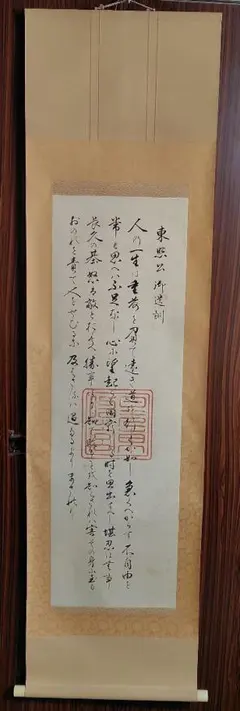 東照公御遺訓
人の一生は重荷を負て遠き道を行くが如し急くへからす不自由を
常と思へは不足なし心に望起らは困窮したる時を思出すへし堪忍は無事
長久の基怒は敵とおもへ勝事はかり知て負る事を知らされは害その身に至る
おのれを責て人をせむるな及はさるは過たるよりまされり